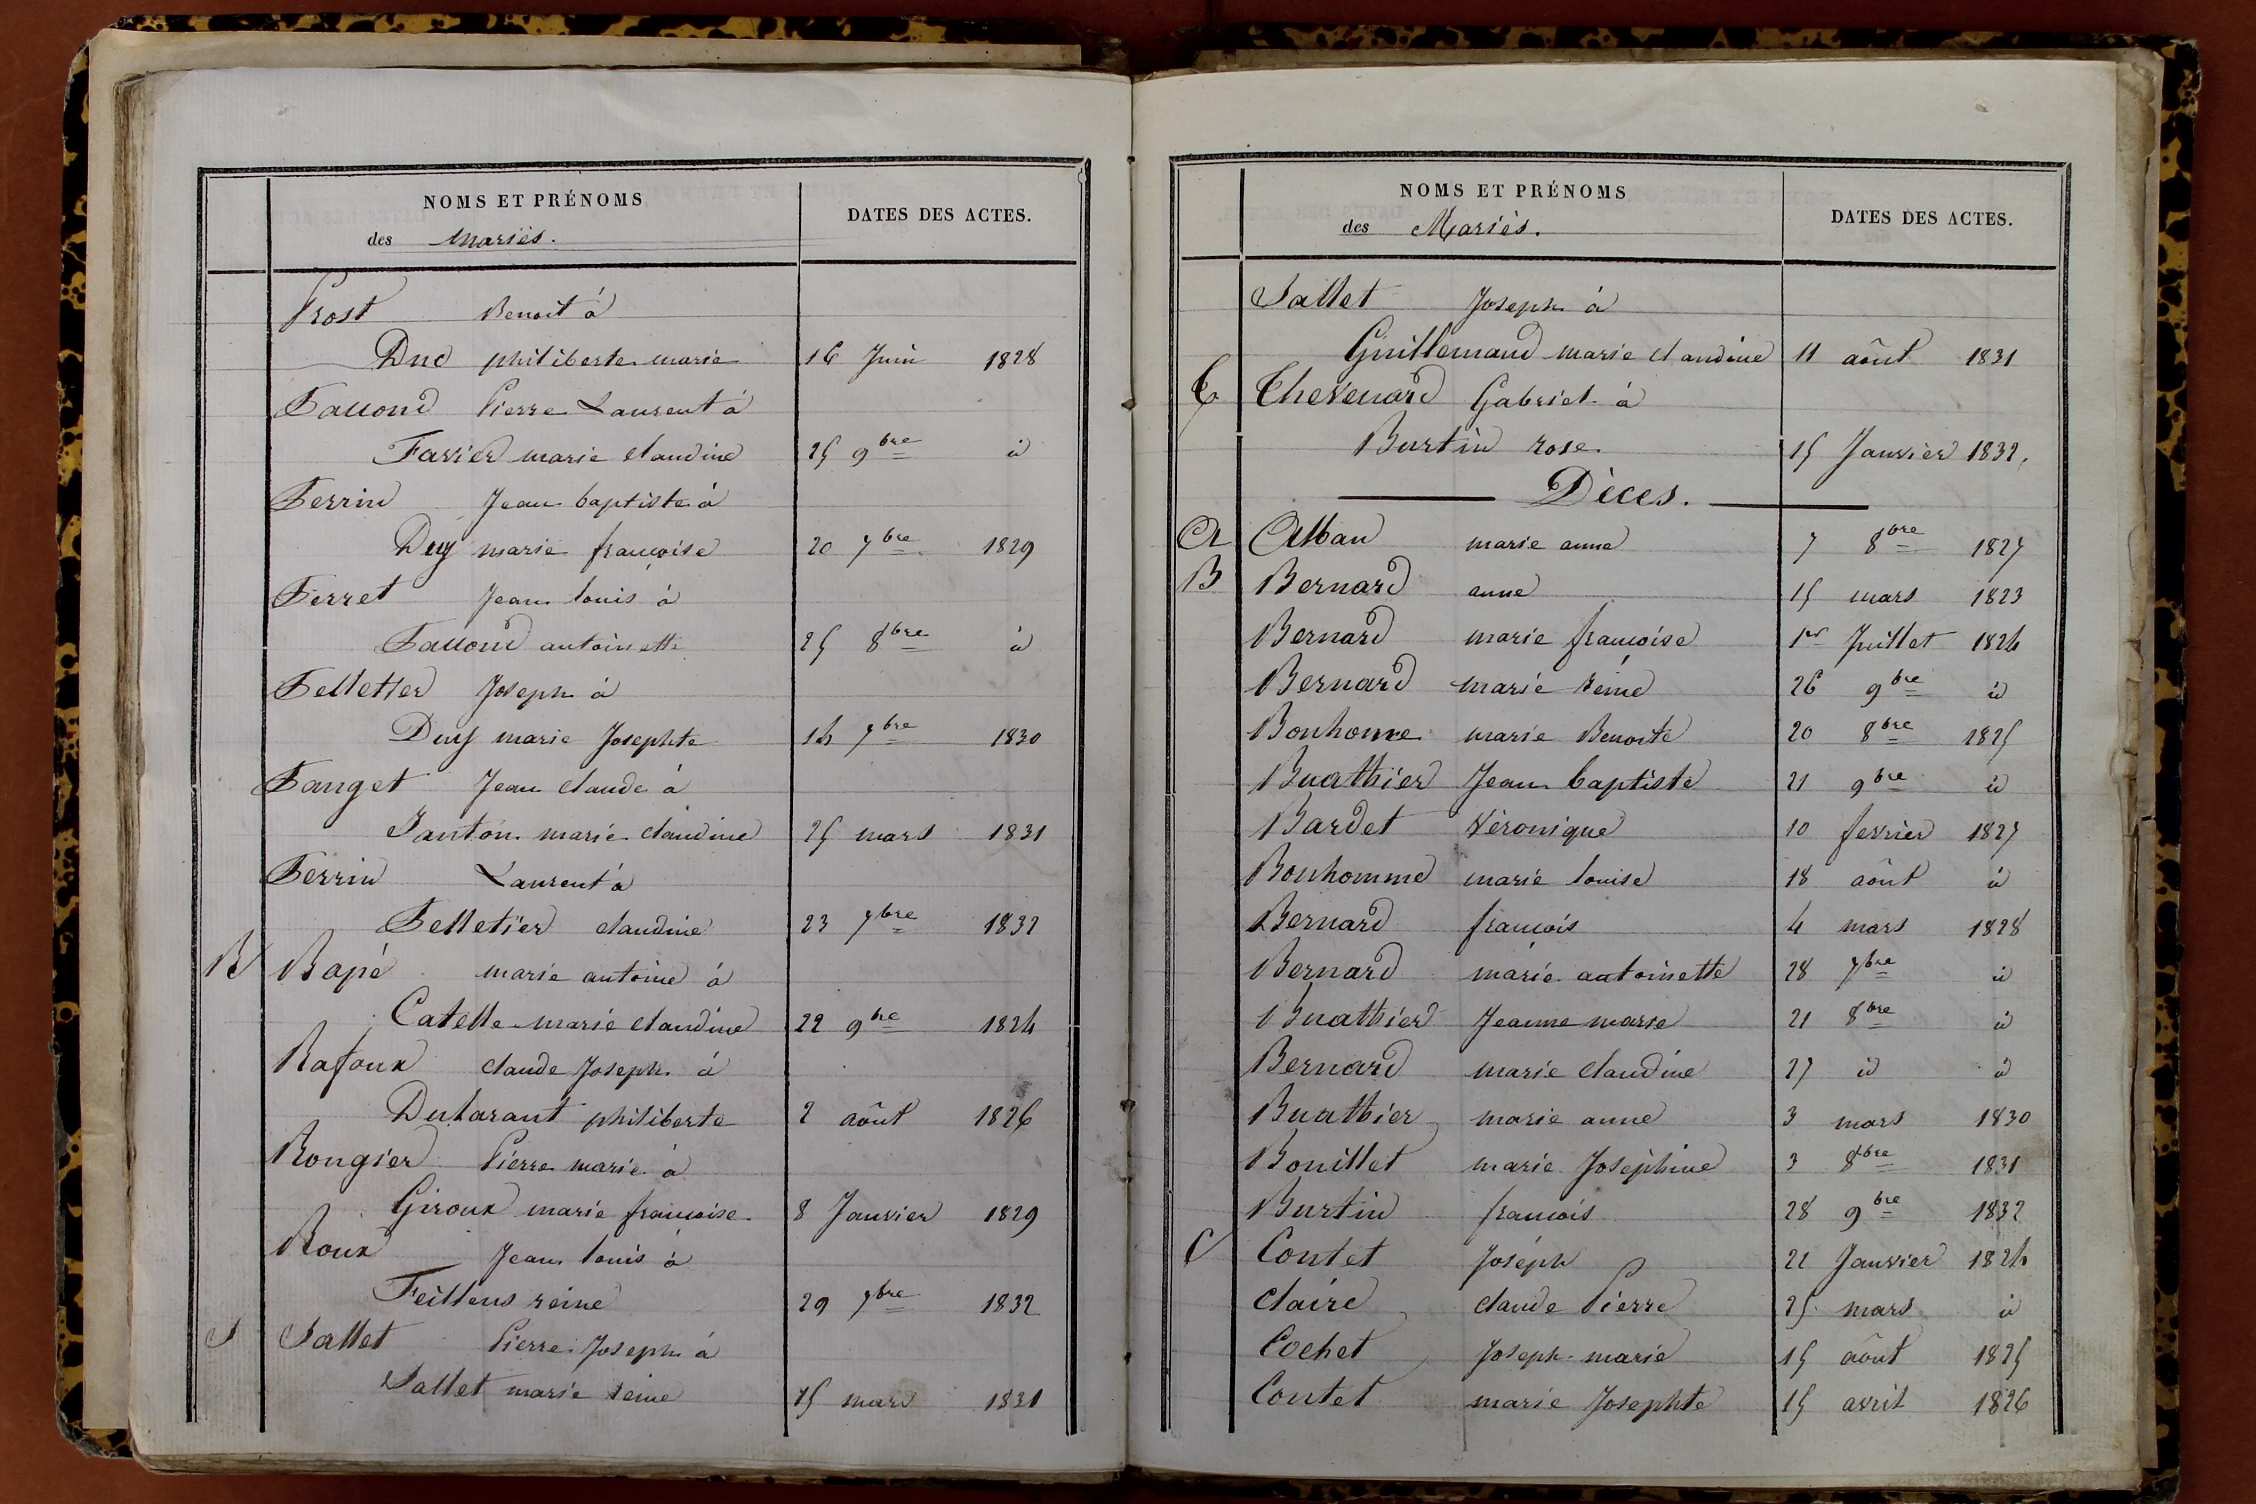 NOMS ET PRÉNOMS
des Mariés.
DATES DES ACTES.
Prost Benoit à
Duc philiberte marie 16 Juin 1828
Pauond Pierre Laurent à
Favier marie claudine 25 9bre id
Perrin Jean baptiste à
Duy marie françoise 20 7bre 1829
Perret Jean louis à
Pauond antoinette 25 8bre id
Pelletier Joseph à
Duy marie Josephte 14 7bre 1830
Panget Jean claude à
Janton marie claudine 25 mars 1831
Perrin Laurent à
Pelletier claudine 23 7bre 1832
R Rapé marie antoine à
Catelle marie claudine 22 9bre 1824
Rafoux claude Joseph à
Dubarant philiberte 2 aôut 1826
Rongier Pierre marie à
Giroux marie françoise 8 Janvier 1829
Roux Jean louis à
Feillens reine 29 7bre 1832
S Sallet Pierre Joseph à
Sallet marie reine 15 mars 1831
NOMS ET PRÉNOMS
des Mariés.
DATES DES ACTES.
Sallet Joseph à
Guillemaud marie claudine 11 aôut 1831
T Thevenard Gabriel à
Burtin rose 15 Janvier 1832.
Dèces.
A Alban marie anne 7 8bre 1827
B Bernard anne 15 mars 1823
Bernard marie françoise 1er Juillet 1824
Bernard marie reine 26 9bre id
Bonhome marie Benoite 20 8bre 1825
Buathier Jean baptiste 21 9bre id
Bardet Véronique 10 fevrier 1827
Bonhomme marie louise 18 aôut id
Bernard françois 4 mars 1828
Bernard marie antoinette 28 7bre id
Buathier Jeanne marie 21 8bre id
Bernard marie claudine 27 id id
Buathier marie anne 3 mars 1830
Bouillet marie Joséphine 3 8bre 1831
Burtin françois 28 9bre 1832
C Contet Joséph 22 Janvier 1824
claire claude Pierre 25 mars id
Cochet Joseph marie 15 aôut 1825
Contet marie Josephte 15 avril 1826